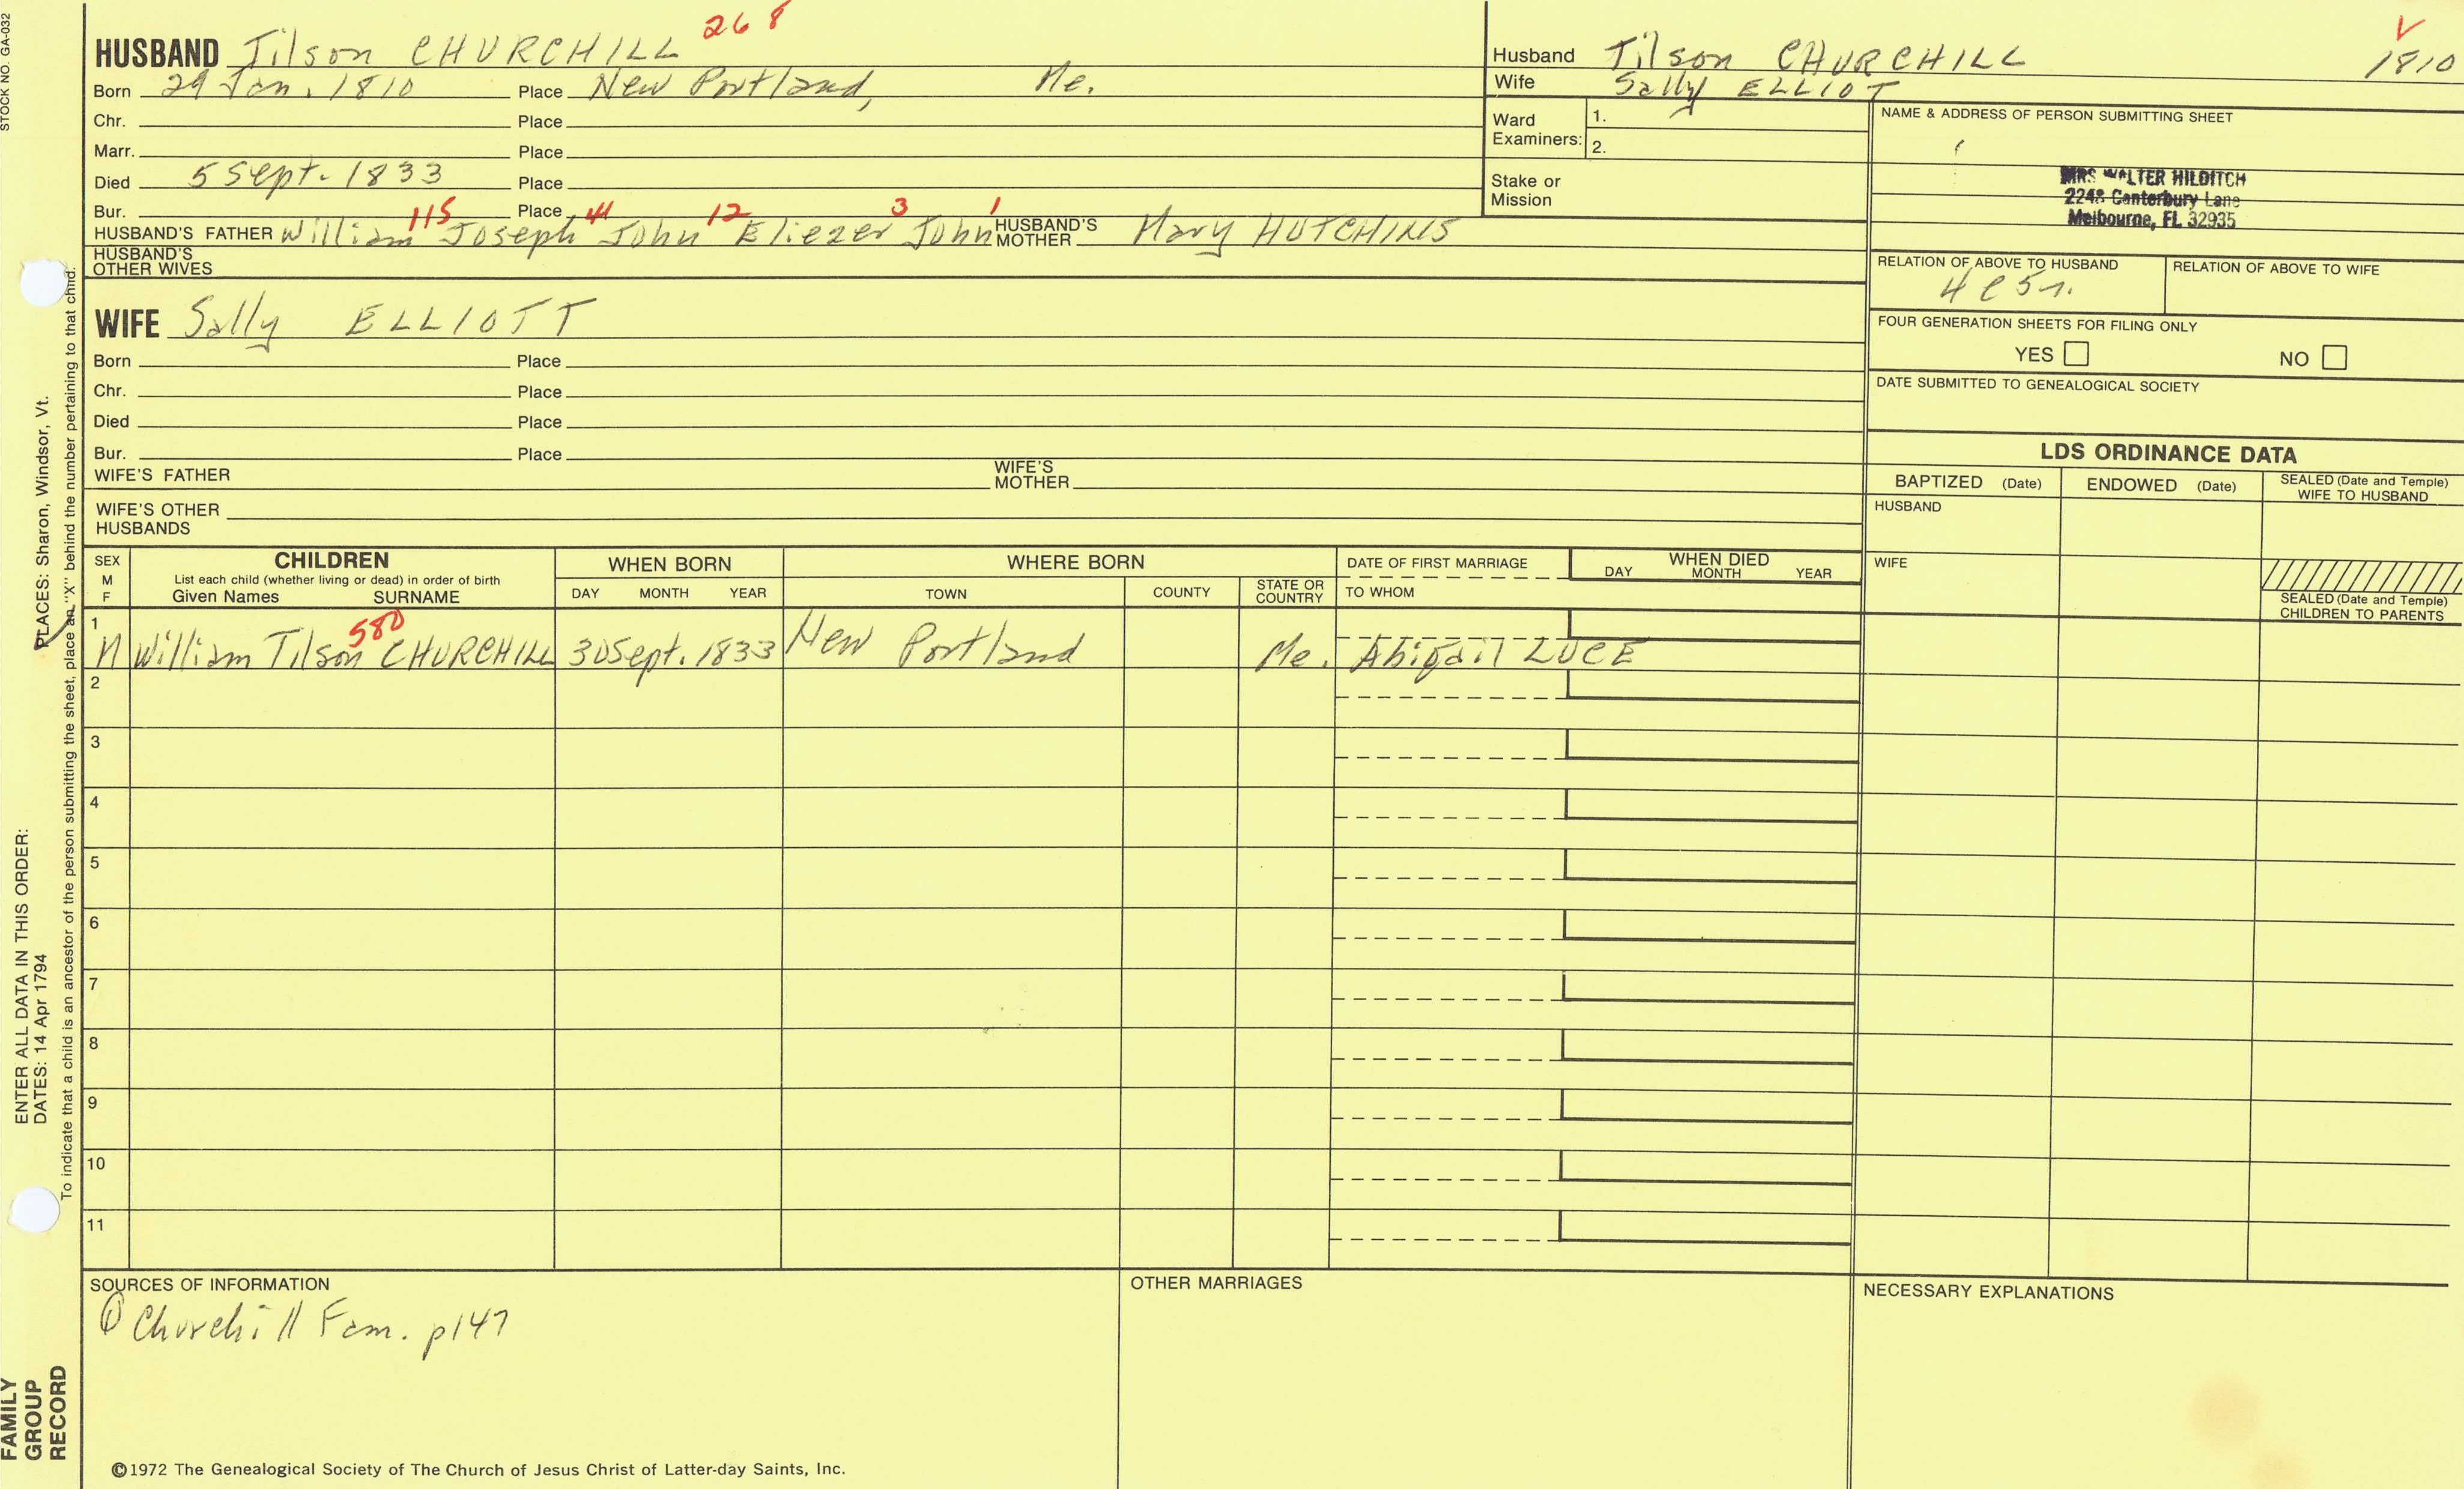 STOCK NO. GA-032
HUSBAND Tilson CHURCHILL 268
Born 29 Jan. 1810 Place New Portland, Me.
Chr. Place
Marr. Place
Died 5 Sept. 1833 Place
Bur. Place
115 41 12 3 1
HUSBAND'S FATHER William Joseph John Eliezer John HUSBAND'S MOTHER Mary HUTCHINS
HUSBAND'S OTHER WIVES
Husband Tilson CHURCHILL
V
1810
Wife Sally ELLIOT
Ward Examiners: 1.
2.
Stake or Mission
NAME & ADDRESS OF PERSON SUBMITTING SHEET
MRS WALTER HILDITCH
2248 Canterbury Lane
Melbourne, FL 32935
RELATION OF ABOVE TO HUSBAND RELATION OF ABOVE TO WIFE
FOUR GENERATION SHEETS FOR FILING ONLY
YES NO
DATE SUBMITTED TO GENEALOGICAL SOCIETY
WIFE Sally ELLIOTT
Born Place
Chr. Place
Died Place
Bur. Place
WIFE'S FATHER WIFE'S MOTHER
WIFE'S OTHER HUSBANDS
LDS ORDINANCE DATA
BAPTIZED (Date) ENDOWED (Date) SEALED (Date and Temple) WIFE TO HUSBAND
HUSBAND
WIFE
SEALED (Date and Temple) CHILDREN TO PARENTS
SEX M F
CHILDREN
List each child (whether living or dead) in order of birth
Given Names SURNAME
WHEN BORN
DAY MONTH YEAR
WHERE BORN
TOWN COUNTY STATE OR COUNTRY
DATE OF FIRST MARRIAGE
TO WHOM
WHEN DIED
DAY MONTH YEAR
580
1 M William Tilson CHURCHILL 30 Sept. 1833 New Portland Me. Abigail LUCE
2
3
4
5
6
7
8
9
10
11
SOURCES OF INFORMATION
① Churchill Fam. p147
OTHER MARRIAGES
NECESSARY EXPLANATIONS
©1972 The Genealogical Society of The Church of Jesus Christ of Latter-day Saints, Inc.
FAMILY
GROUP
RECORD
ENTER ALL DATA IN THIS ORDER:
DATES: 14 Apr 1794 PLACES: Sharon, Windsor, Vt.
To indicate that a child is an ancestor of the person submitting the sheet, place an "X" behind the number pertaining to that child.